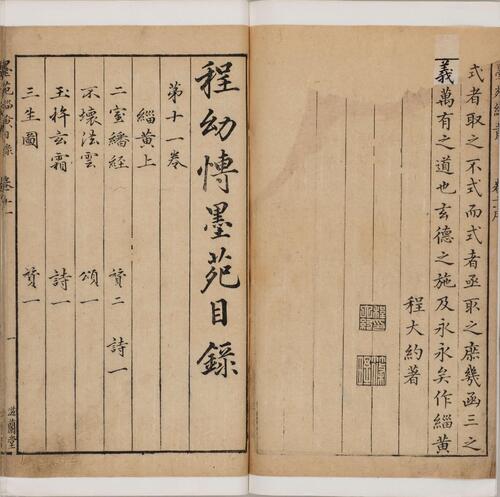 式者取之不式而式者亟取之庶幾函三之
義萬有之道也玄德之施及永永矣作緇黄
程大約著
程幼博墨苑目錄
第十一卷
緇黄上
二室繙經 賛二 詩一
不壞法雲 頌一
玉杵玄霜 詩一
三生圖 賛一
一
滋蘭堂